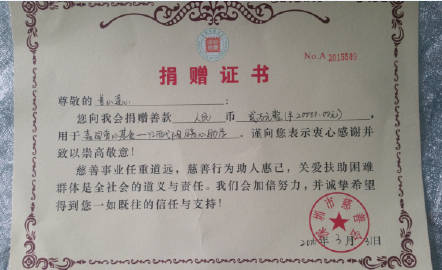 No.A 2015589
捐赠证书
尊敬的
您向我会捐赠善款 人民 币 贰万元整(¥20000.00元),
用于 。谨向您表示衷心感谢并
致以崇高敬意!
慈善事业任重道远,慈善行为助人惠己,关爱扶助困难
群体是全社会的道义与责任。我们会加倍努力,并诚挚希望
得到您一如既往的信任与支持!
深圳市慈善会
年 3 月 31日